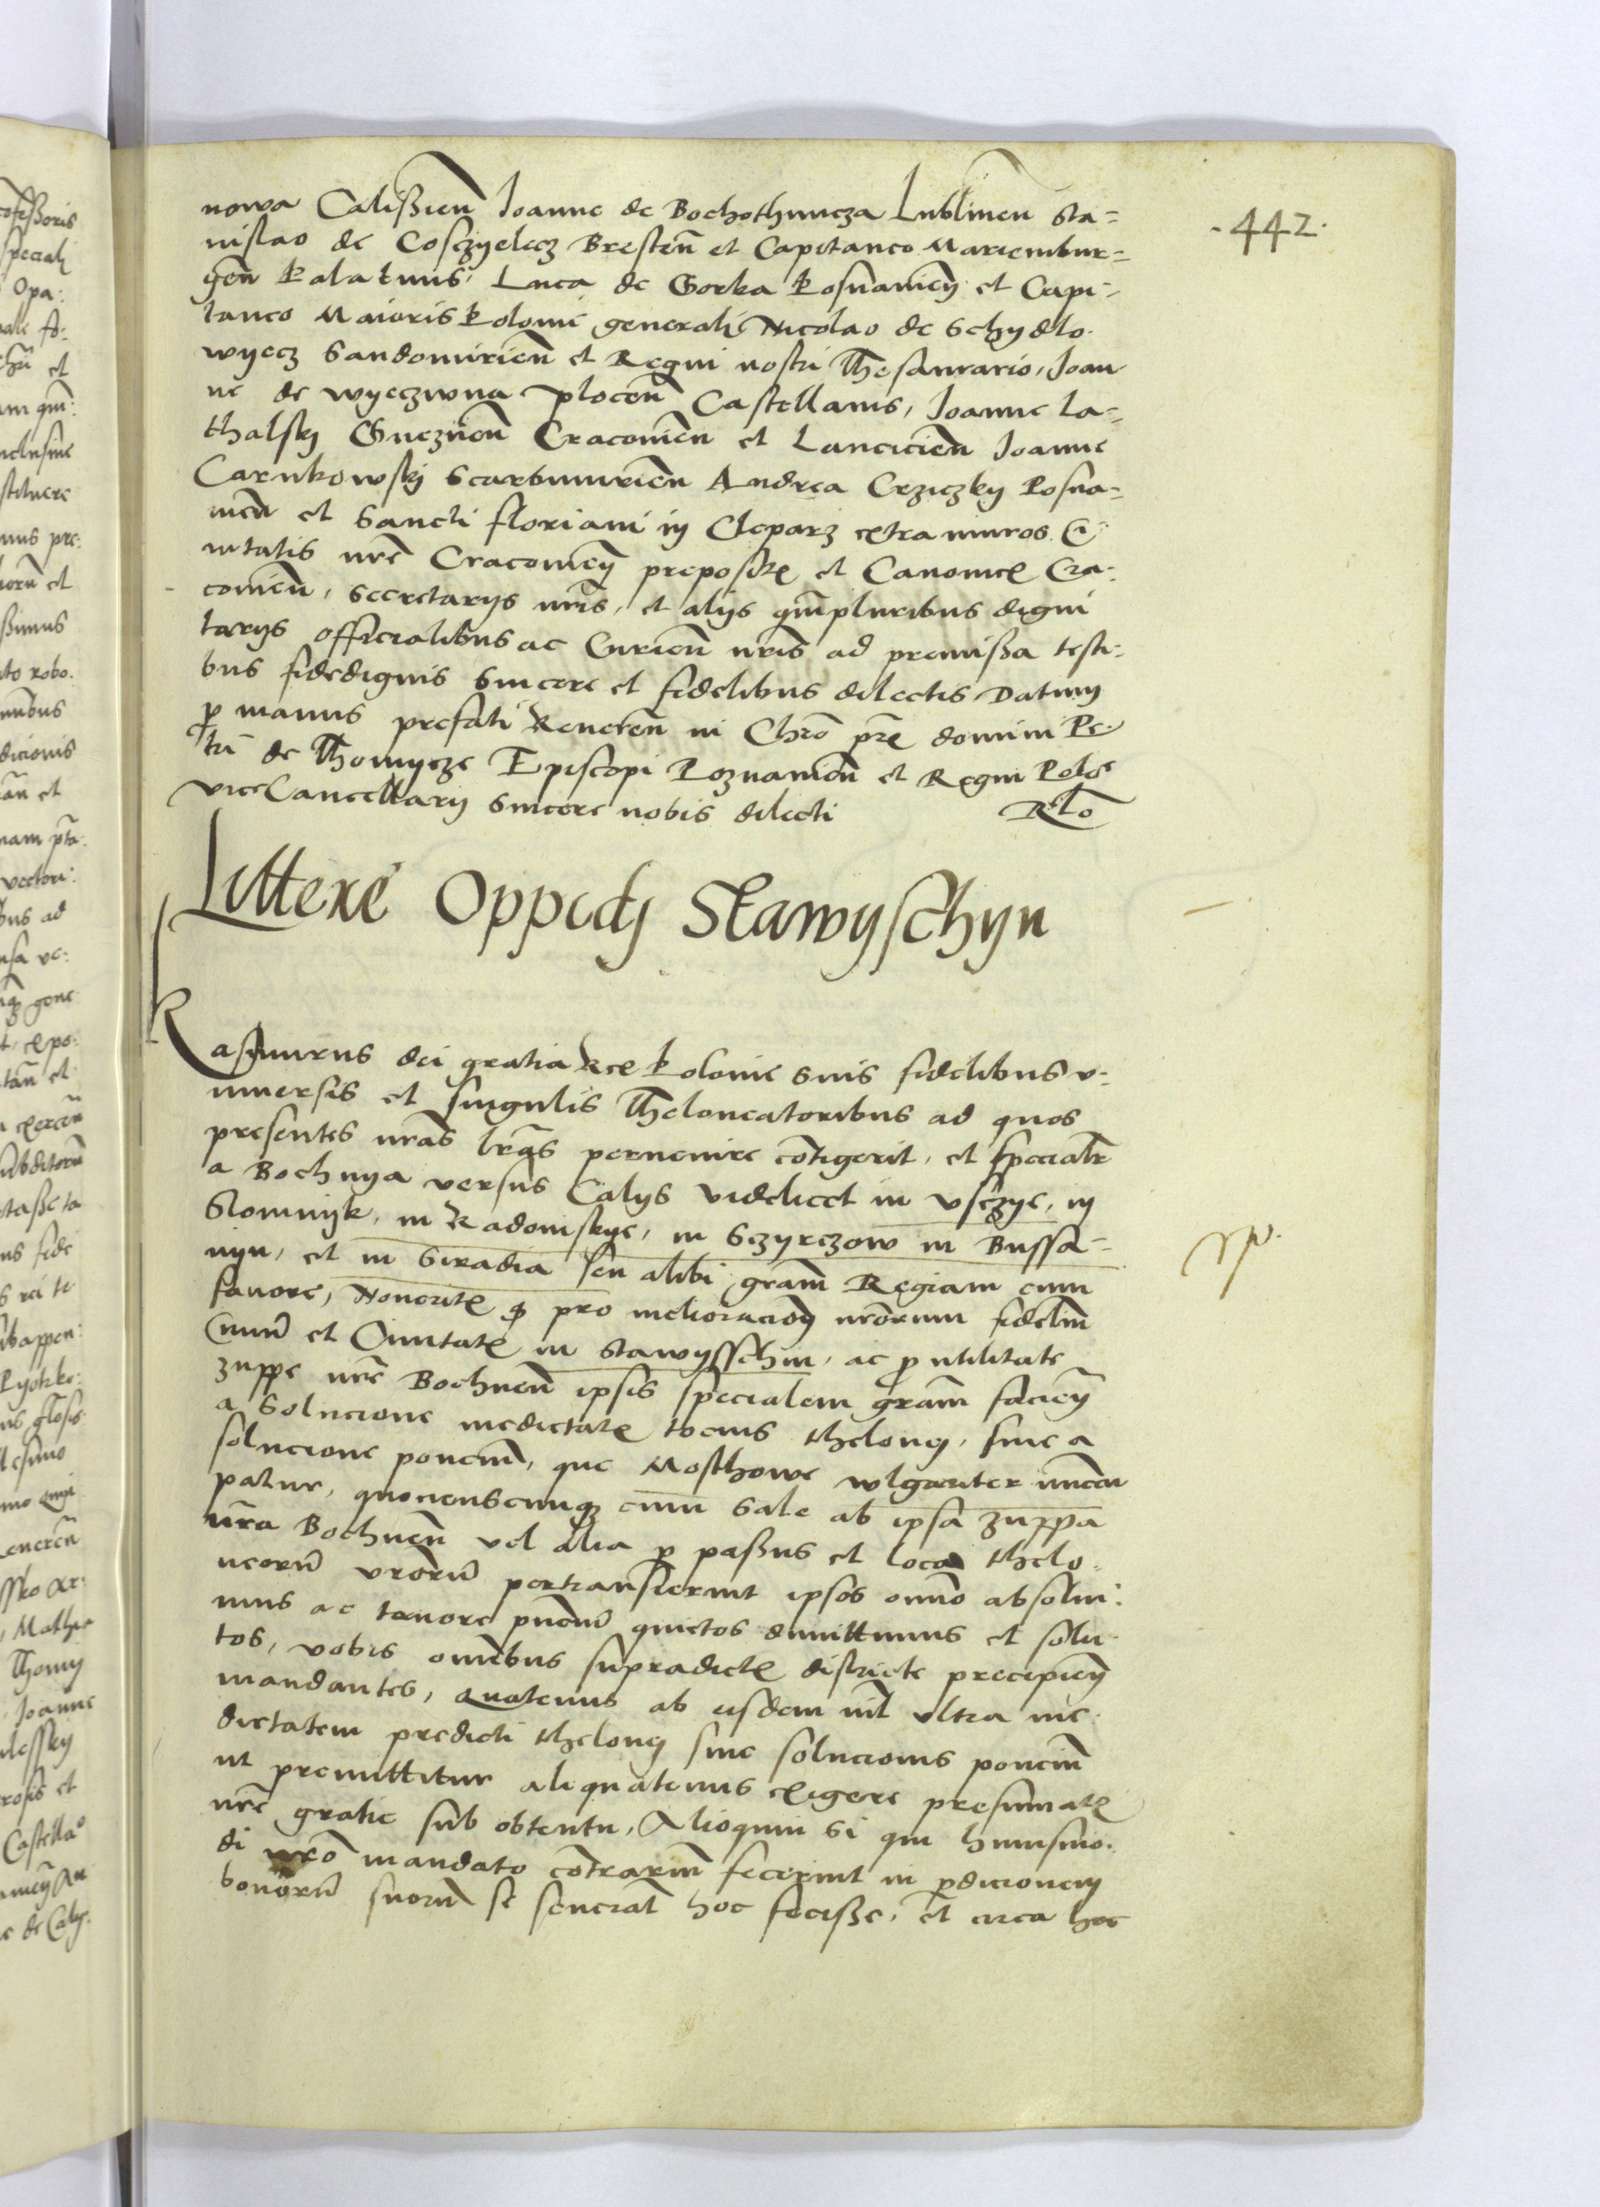 nowa Calißien̄ Joanne de Bochothnicza Lublinen̄ Sta-
nislao de Cosczyelecz Bresten̄ et Capitaneo Mariembur-
gen̄ Palatinis, Luca de Gorka Posnanien̄ et Capi-
taneo Maioris Polonie generali Nicolao de Schydlo-
wyecz Sandomirien̄ et Regni nostri Thesaurario, Joan
ne de Wyeczwna Plocen̄ Castellanis, Joanne La-
thalskj Gneznen̄ Cracovien̄ et Lancicien̄ Joanne
Carnkowskj Scarbimirien̄ Andrea Crziczky Posna-
nien̄ et Sancti floriani in Cleparz extra muros Ci-
vitatis nr̄e Cracovien̄ prepositis et Canonicis Cra-
covien̄, Secretarijs nr̄is, et alijs qm̄pluribus digni
tarijs officialibus ac Curien̄ nr̄is ad premißa testi-
bus fidedignis Sincere et fidelibus dilectis Datum
p manus prefati Reveren̄ in Chr̄o pr̄e domini Pe-
tri de Thomycze Episcopi Poznanien̄ et Regni Polo͞e
vice Cancellarij Sincere nobis dilecti Rlō
Littere Oppidj Stawyschyn
Kasimirus dei gratia Rex Polonie Suis fidelibus v-
niversis et singulis Theloneatoribus ad quos
presentes nr̄as lr̄as pervenire cōtigerit, et specialr̄
a Bochnya versus Calys videlicet in Vsczye, in
Slomnyk, in Radomskye, in Sczyrczow in Bussa-
nyn, et in Siradia seu alibi gram̄ Regiam cum
favore, Noveritis q pro melioracion̄ nr̄orum fidelium̄
Civiū et Civitatis in Stawysschin, ac p utilitate
zuppe nr̄e Bochnen̄ ipsis specialem gram̄ facien̄
a Solucione medietatis tocius thelonej, sive a
solucione poncium̄, que Mosthowe wlgariter nuncu
patur, quocienscumq cum Sale ab ipsa zuppa
nr̄a Bochnen̄ vel alia p paßus et loca thelo-
neorū vr̄orū pertransierint ipsos omnō absolvi-
mus ac tenore pn̄ciū quietos dimittimus et solu-
tos, vobis omībus supradictis districte precipien̄
mandantes, Quatenus ab eisdem nil̄ ultra me-
dietatem predicti thelonej sive solucionis ponciū
ut premittitur aliquatenus exigere presumatis
nr̄e gratie sub obtentu, Alioquin Si qui huiusmo-
di nr̄o mandato cōtrariū fecerint in pdicionem
bonorū suorū se sencīat hoc feciße, et circa hoc
·442·